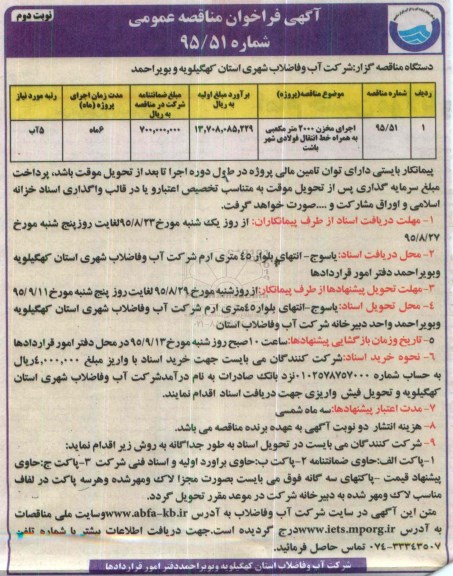 نوبت دوم
آگهی فراخوان مناقصه عمومی
شماره ۹۵/۵۱
دستگاه مناقصه گزار: شرکت آب وفاضلاب شهری استان کهگیلویه و بویراحمد
ردیف شماره مناقصه موضوع مناقصه(پروژه) برآورد مبلغ اولیه به ریال مبلغ ضمانتنامه شرکت در مناقصه به ریال مدت زمان اجرای پروژه (ماه) رتبه مورد نیاز
۱ ۹۵/۵۱ اجرای مخزن ۲۰۰۰ متر مکعبی به همراه خط انتقال فولادی شهر باشت ۱۳,۷۰۸,۰۸۵,۲۲۹ ۷۰۰,۰۰۰,۰۰۰ ۶ماه ۵آب
پیمانکار بایستی دارای توان تامین مالی پروژه در طول دوره اجرا تا بعد از تحویل موقت باشد، پرداخت
مبلغ سرمایه گذاری پس از تحویل موقت به متناسب تخصیص اعتبارو یا در قالب واگذاری اسناد خزانه
اسلامی و اوراق مشارکت و ....صورت خواهد گرفت.
۱- مهلت دریافت اسناد از طرف پیمانکاران: از روز یک شنبه مورخ ۹۵/۸/۲۳لغایت روزپنج شنبه مورخ
۹۵/۸/۲۷
۲- محل دریافت اسناد: یاسوج- انتهای بلوار ۴۵ متری ارم شرکت آب وفاضلاب شهری استان کهگیلویه
وبویراحمد دفتر امور قراردادها
۳- مهلت تحویل پیشنهادها از طرف پیمانکار: ازروزشنبه مورخ ۹۵/۸/۲۹ لغایت روز پنج شنبه مورخ ۹۵/۹/۱۱
۴- محل تحویل اسناد: یاسوج-انتهای بلوار ۴۵متری ارم شرکت آب وفاضلاب شهری استان کهگیلویه
وبویراحمد واحد دبیرخانه شرکت آب وفاضلاب استان
۵- تاریخ وزمان بازگشایی پیشنهادها: ساعت ۱۰صبح روز شنبه مورخ ۹۵/۹/۱۳در محل دفتر امور قراردادها
۶- نحوه خرید اسناد: شرکت کنندگان می بایست جهت خرید اسناد با واریز مبلغ ۴,۰۰۰,۰۰۰ریال
به حساب شماره ۰۱۰۲۵۷۸۷۵۷۰۰۰نزد بانک صادرات به نام درآمدشرکت آب وفاضلاب شهری استان
کهگیلویه و تحویل فیش واریزی جهت دریافت اسناد اقدام نمایند.
۷- مدت اعتبار پیشنهادها: سه ماه شمسی
۸- هزینه انتشار دو نوبت آگهی به عهده برنده مناقصه می باشد.
۹- شرکت کنندگان می بایست در تحویل اسناد به طور جداگانه به روش زیر اقدام نماید:
۱-پاکت الف:حاوی ضمانتنامه ۲-پاکت ب:حاوی براورد اولیه و اسناد فنی شرکت ۳-پاکت ج:حاوی
پیشنهاد قیمت -پاکتهای سه گانه فوق می بایست بصورت مجزا لاک ومهرشده وهرسه پاکت در لفاف
مناسب لاک ومهر شده به دبیرخانه شرکت در موعد مقرر تحویل گردد.
متن این آگهی در سایت شرکت آب وفاضلاب به آدرس www.abfa-kb.ir وسایت ملی مناقصات
به آدرس www.iets.mporg.ir درج گردیده است.جهت دریافت اطلاعات بیشتر با شماره تلفن
۰۷۴-۳۳۳۴۳۵۰۷ تماس حاصل فرمائید.
شرکت آب وفاضلاب استان کهگیلویه وبویراحمددفتر امور قراردادها